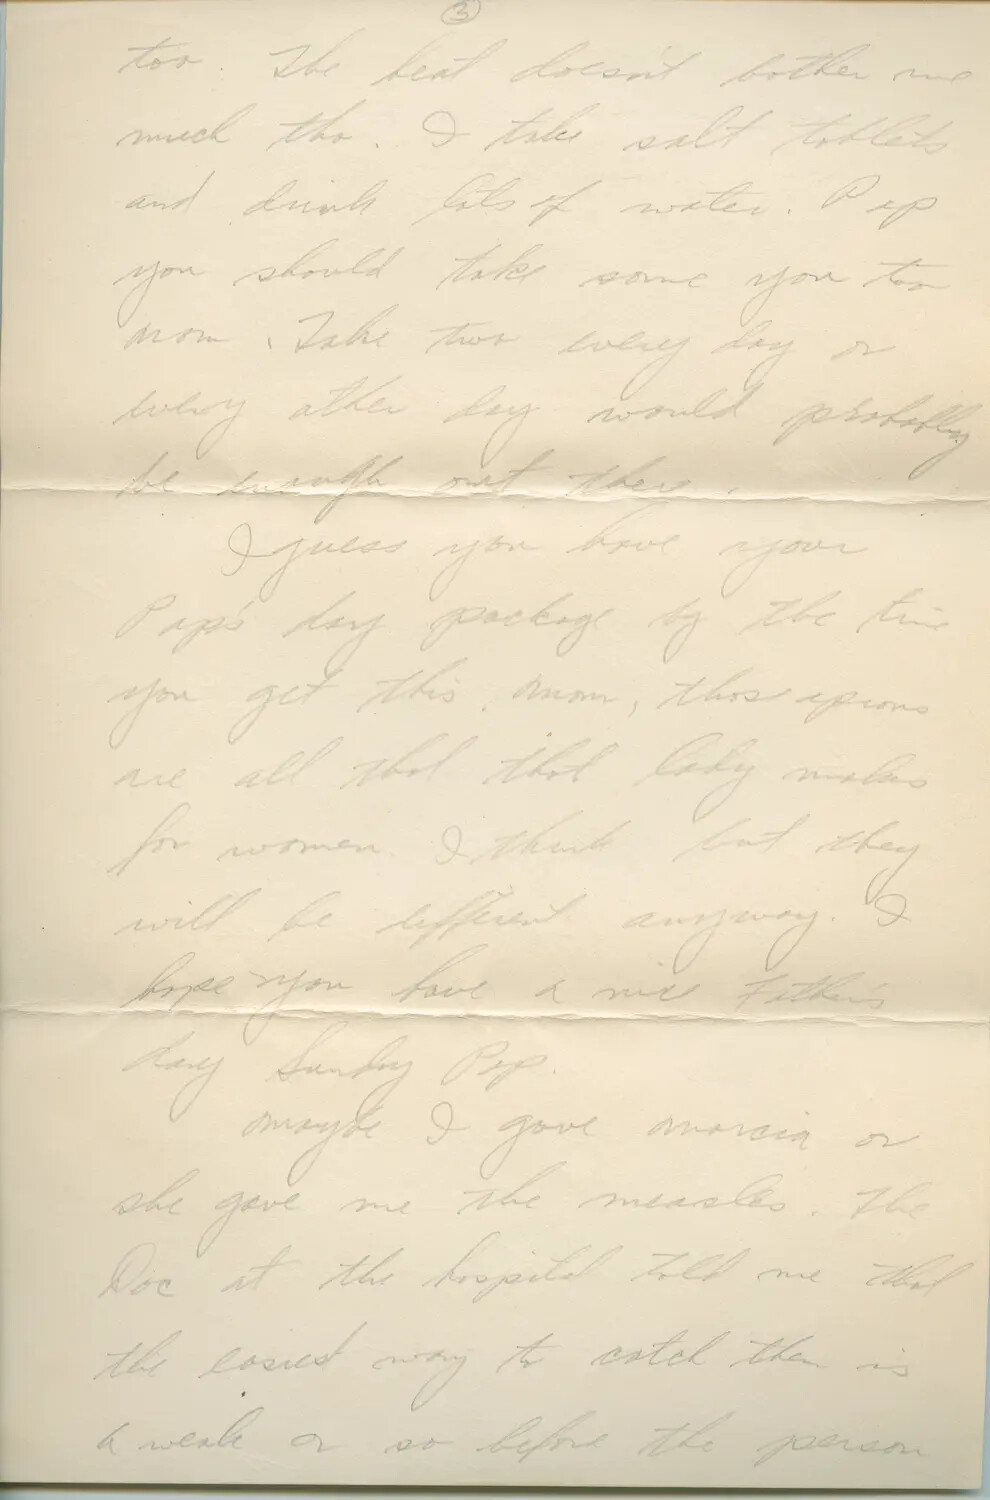 3
too. The heat doesn't bother me
much tho. I take salt tablets
and drink lots of water. Pop
you should take some you too
mom. Take two every day or
every other day would probably
be enough out there.
I guess you have your
Pap's day package by the time
you get this. Mom, those aprons
are all that that lady makes
for women I think but they
will be different anyway. I
hope you have a nice Father's
day Sunday Pop.
Maybe I gave Marcia or
she gave me the measles. The
Doc at the hospital told me that
the easiest way to catch them is
a weak or so before the person